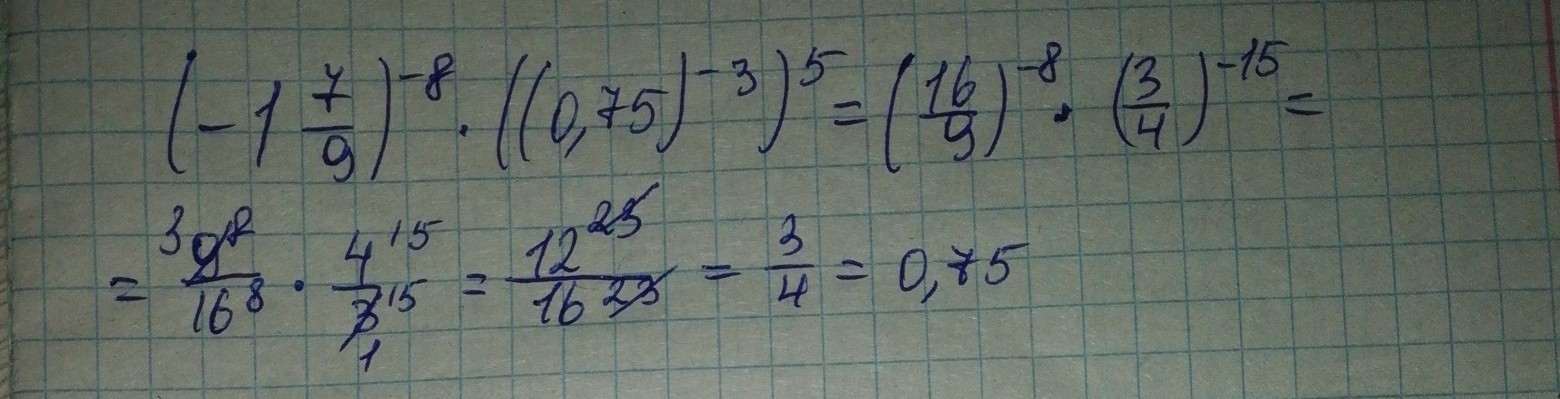 (-1 7/9)^-8 · ((0,75)^-3)^5 = (16/9)^-8 · (3/4)^-15 =
= 3 9^8/16^8 · 4^15/3^15 1 = 12^23/16^23 = 3/4 = 0,75